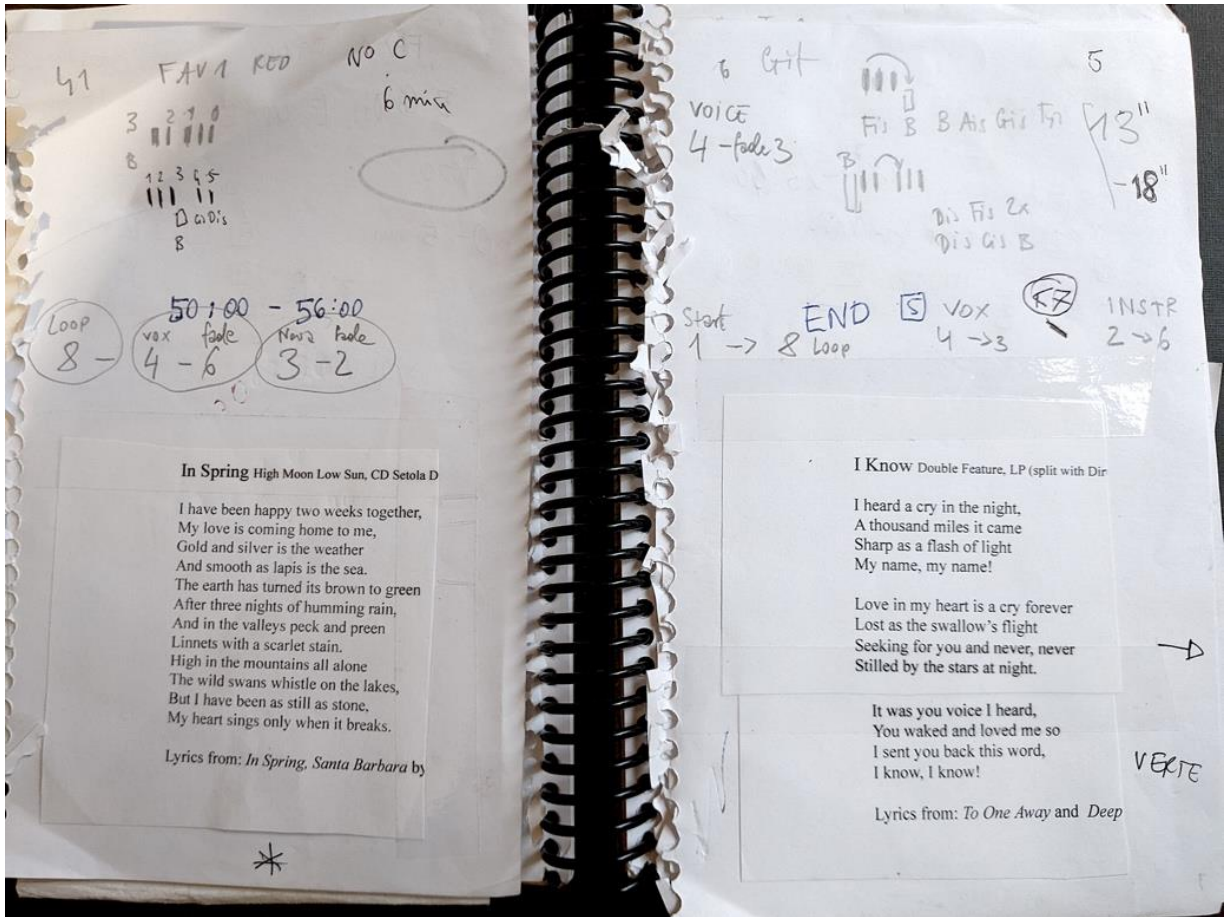 41 FAV1 RED NO C
6 min
3 2 1 0
B
1 2 3 4 5
Gis Dis
B
50:00 - 56:00
Loop vox fade Nova fade
8 - 4 - 6 3 - 2
In Spring High Moon Low Sun, CD Setola D
I have been happy two weeks together,
My love is coming home to me,
Gold and silver is the weather
And smooth as lapis is the sea.
The earth has turned its brown to green
After three nights of humming rain,
And in the valleys peck and preen
Linnets with a scarlet stain.
High in the mountains all alone
The wild swans whistle on the lakes,
But I have been as still as stone,
My heart sings only when it breaks.
Lyrics from: In Spring, Santa Barbara by
6 Git 5
VOICE
4 - fade 3
Fis B B Ais Gis Fis
13"
B
-18"
Dis Fis 2x
Dis Gis B
Start END 5 VOX K7 INSTR
1 -> 8 Loop 4 -> 3 2 -> 6
I Know Double Feature, LP (split with Dir
I heard a cry in the night,
A thousand miles it came
Sharp as a flash of light
My name, my name!
Love in my heart is a cry forever
Lost as the swallow's flight
Seeking for you and never, never
Stilled by the stars at night.
It was you voice I heard,
You waked and loved me so
I sent you back this word,
I know, I know!
VERTE
Lyrics from: To One Away and Deep